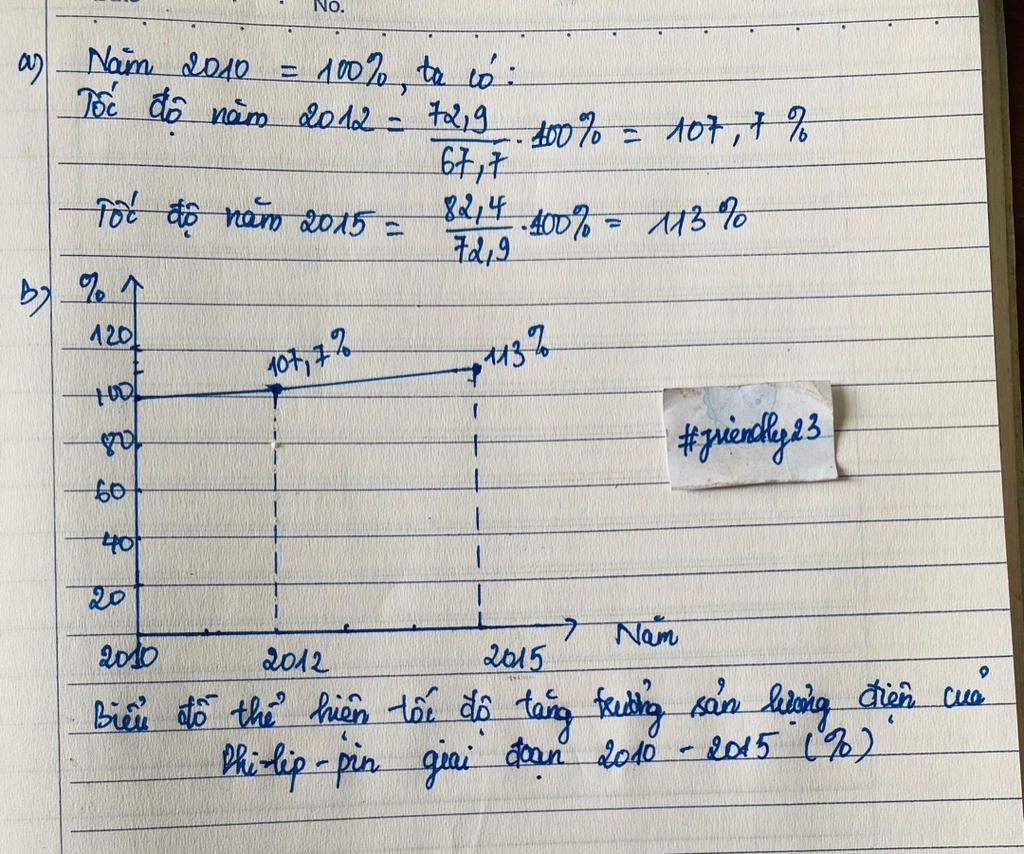 No.
a) Năm 2010 = 100%, ta có:
Tốc độ năm 2012 = 72,9/67,7 . 100% = 107,7 %
Tốc độ năm 2015 = 82,4/72,9 . 100% = 113 %
b) %
120
107,7%
113%
100
80
60
40
20
#friendly23
2010 2012 2015 Năm
Biểu đồ thể hiện tốc độ tăng trưởng sản lượng điện cuả
Phi-lip-pin giai đoạn 2010 - 2015 (%)